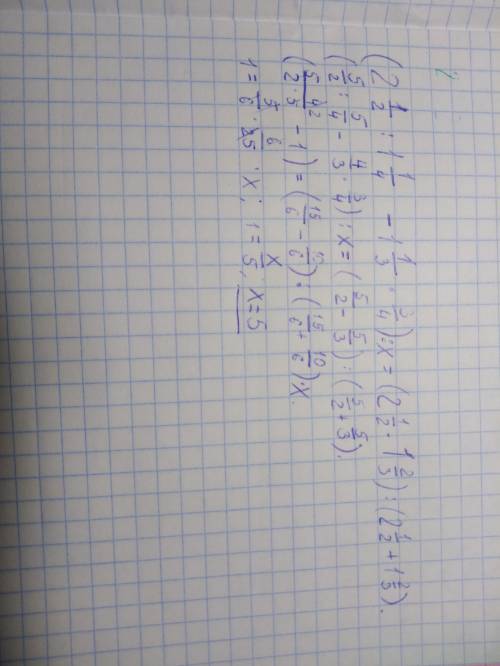 2
(2 1/2 : 1 1/4 - 1 1/3 · 3/4) : x = (2 1/2 - 1 2/3) : (2 1/2 + 1 2/3).
(5/2 : 5/4 - 4/3 · 3/4) : x = (5/2 - 5/3) : (5/2 + 5/3).
(5/2 · 4/5 - 1) = (15/6 - 10/6) : (15/6 + 10/6) · x.
1 = 5/6 · 6/25 · x; 1 = x/5; x = 5